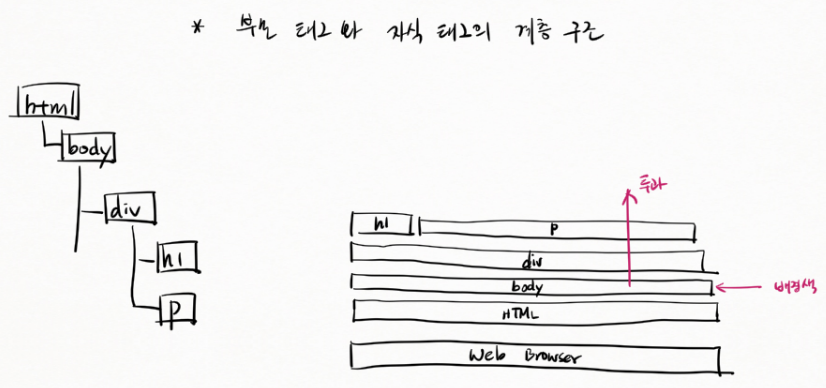 * 부모 태그와 자식 태그의 계층 구조
html
body
div
h1
p
투과
h1 p
div
body 배경색
HTML
Web Browser